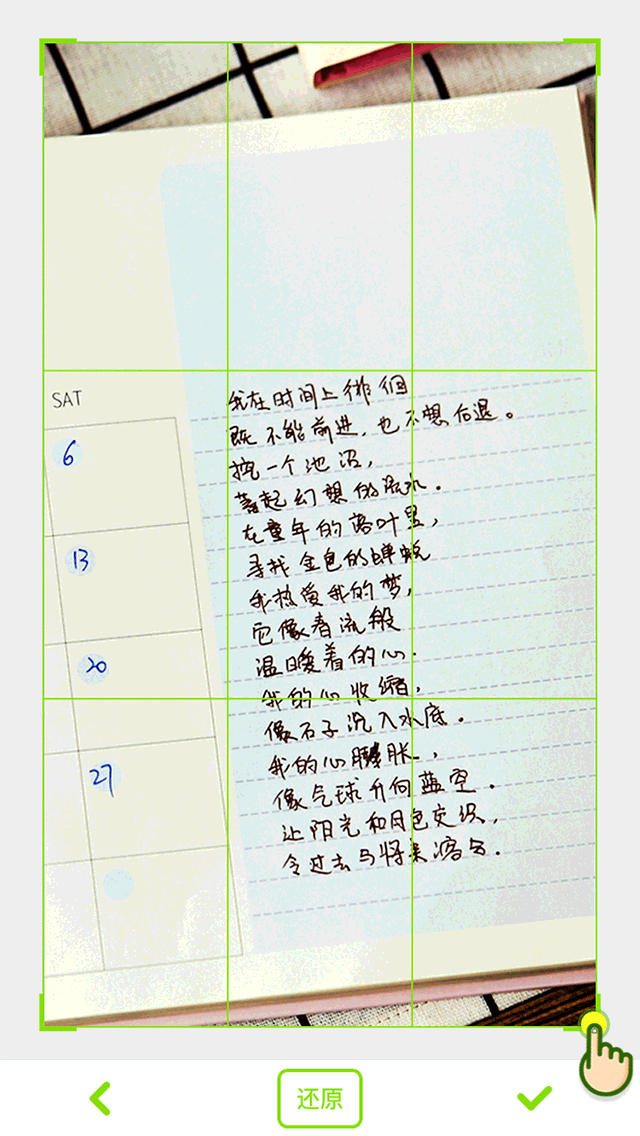 SAT
6
13
20
27
我在时间上徘徊
既不能前进,也不想后退。
挖一个池沼,
蓄起幻想的流水。
在童年的落叶里,
寻找金色的蝉蜕
我热爱我的梦,
它像春流般
温暖着的心.
我的心收缩,
像石子沉入水底.
我的心膨胀,
像气球升向蓝空.
让阳光和月色交织,
令过去与将来溶合.
还原